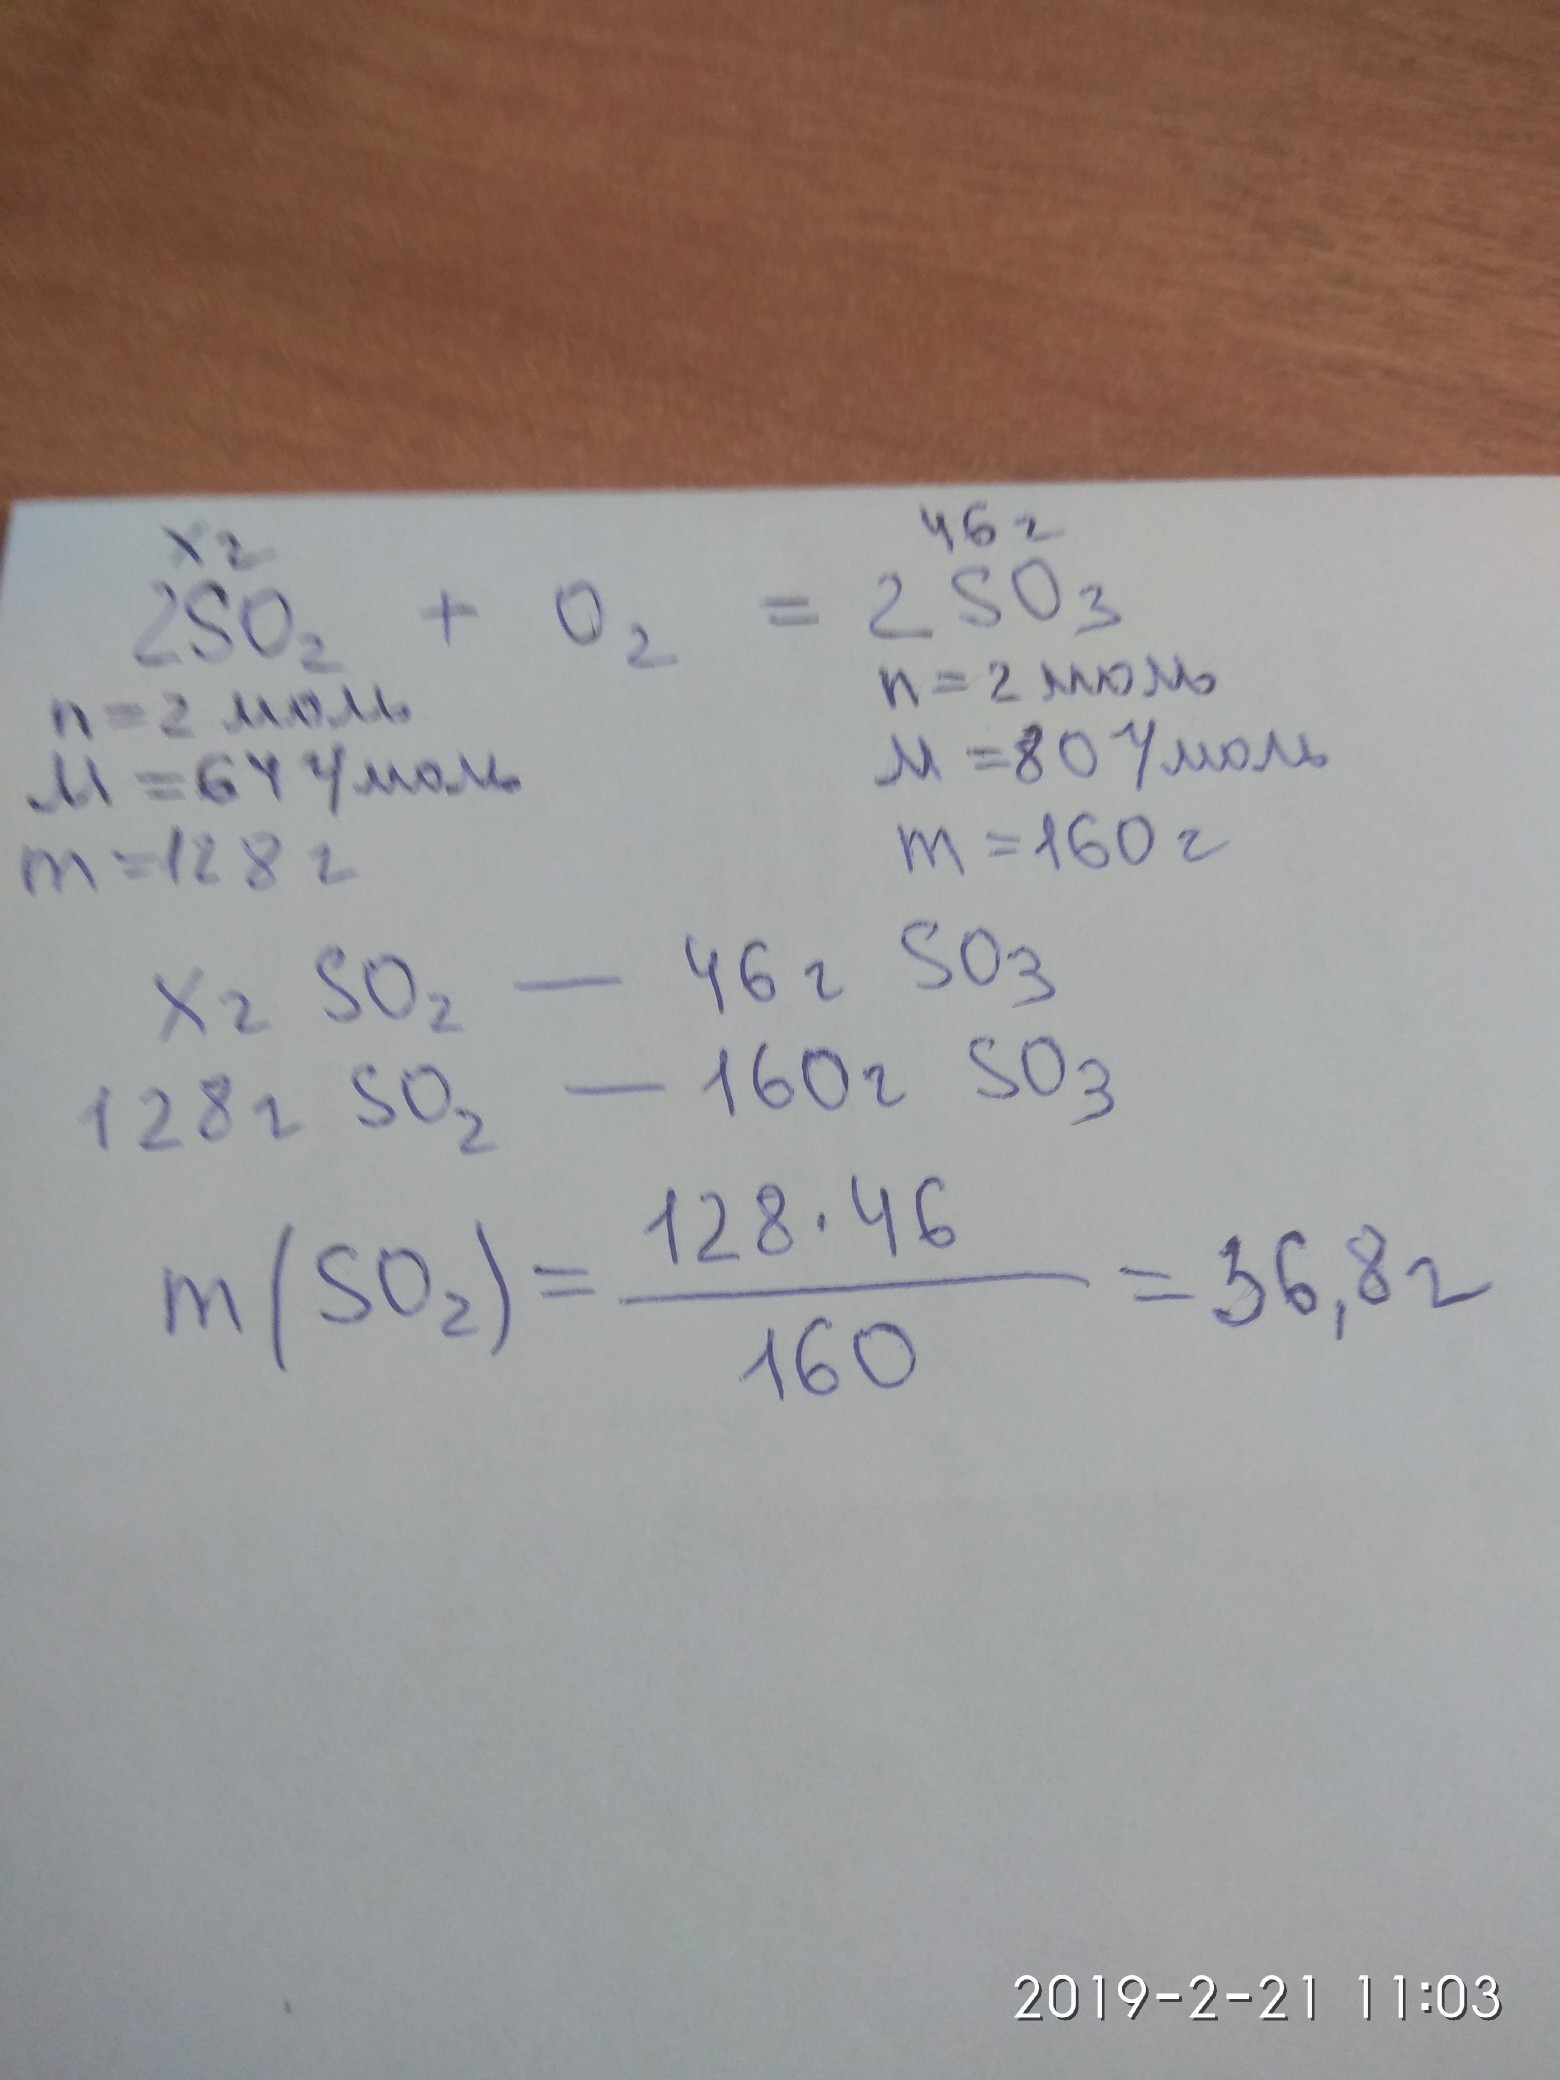 х г 46 г
2SO₂ + O₂ = 2SO₃
n = 2 моль n = 2 моль
M = 64 г/моль M = 80 г/моль
m = 128 г m = 160 г
х г SO₂ — 46 г SO₃
128 г SO₂ — 160 г SO₃
128 · 46
m(SO₂) = = 36,8 г
160
2019-2-21 11:03